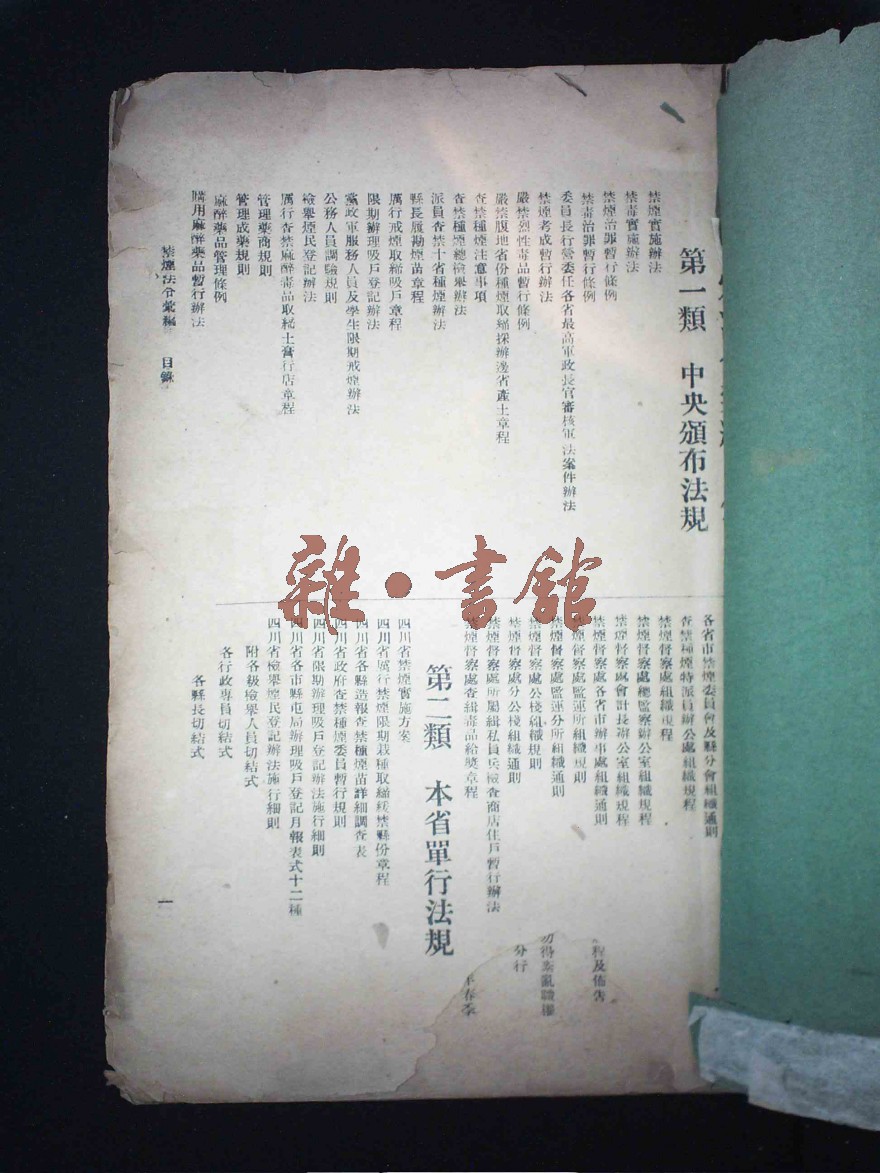 第一類　中央頒布法規
禁煙實施辦法
禁毒實施辦法
禁煙治罪暫行條例
禁毒治罪暫行條例
委員長行營委任各省最高軍政長官審核軍法案件辦法
禁煙考成暫行辦法
嚴禁烈性毒品暫行條例
嚴禁腹地省份種煙取締採辦邊省產土章程
查禁種煙注意事項
查禁種煙總檢舉辦法
派員查禁十省種煙辦法
縣長履勘煙苗章程
厲行戒煙取締吸戶章程
限期辦理吸戶登記辦法
黨政軍服務人員及學生限期戒煙辦法
公務人員調驗規則
檢舉煙民登記辦法
厲行查禁麻醉毒品取締土膏行店章程
管理藥商規則
管理成藥規則
麻醉藥品管理條例
購用麻醉藥品暫行辦法
各省市禁煙委員會及縣分會組織通則
查禁種煙特派員辦公處組織規程
禁煙督察處組織規程
禁煙督察處總監察辦公室組織規程
禁煙督察處會計長辦公室組織規程
禁煙督察處各省市辦事處組織通則
禁煙督察處監運所組織規則
禁煙督察處監運分所組織通則
禁煙督察處公棧組織規則
禁煙督察處分公棧組織通則
禁煙督察處所屬緝私員兵檢查商店住戶暫行辦法
禁煙督察處查緝毒品給獎章程
第二類　本省單行法規
四川省禁煙實施方案
四川省厲行禁煙限期栽種取締緩禁縣份章程
四川省各縣造報查禁種煙苗詳細調查表
四川省政府查禁種煙委員暫行規則
四川省限期辦理吸戶登記辦法施行細則
四川省各市縣屯局辦理吸戶登記月報表式十二種
四川省檢舉煙民登記辦法施行細則
附各級檢舉人員切結式
各行政專員切結式
各縣長切結式
程及佈告
勿得紊亂職權
分行
本春季
禁煙法令彙編　目錄
一
雜·書館